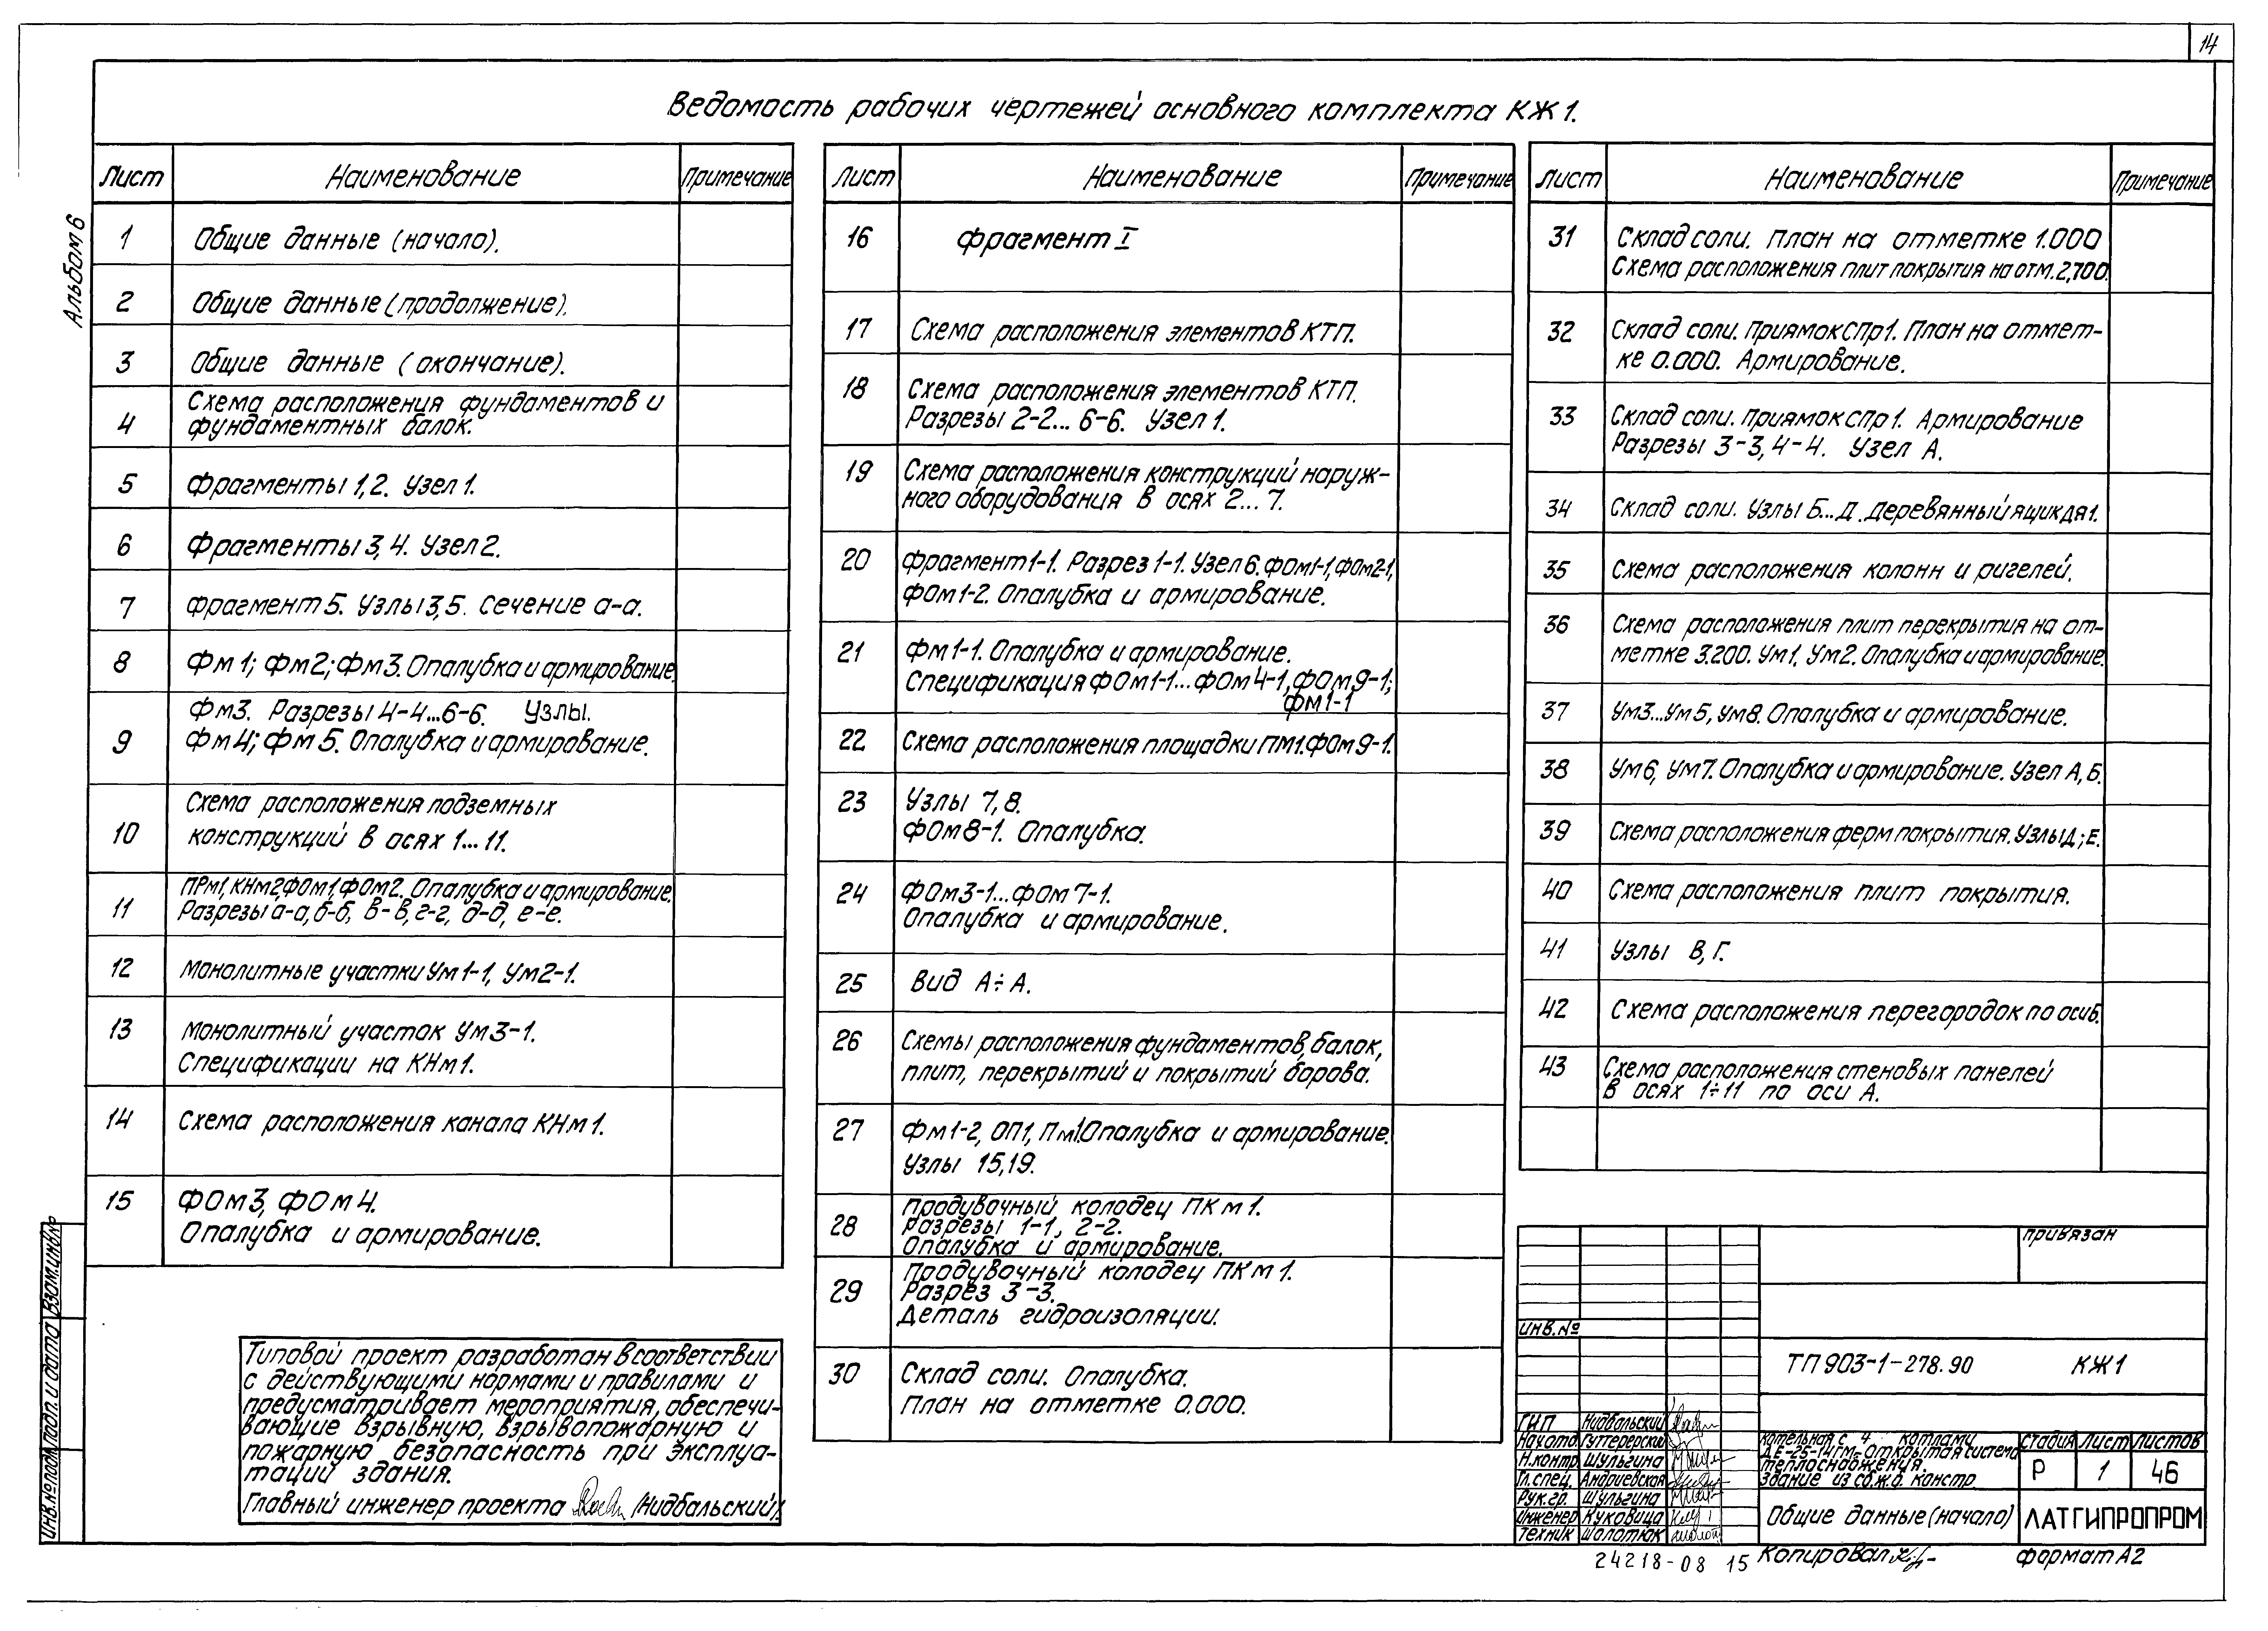 14
Ведомость рабочих чертежей основного комплекта КЖ1.
Альбом 6
Лист Наименование Примечание
1 Общие данные (начало).
2 Общие данные (продолжение).
3 Общие данные (окончание).
Схема расположения фундаментов и
4 фундаментных балок.
5 Фрагменты 1,2. Узел 1.
6 Фрагменты 3,4. Узел 2.
7 Фрагмент 5. Узлы 3,5. Сечение а-а.
8 Фм1; Фм2; Фм3. Опалубка и армирование.
Фм3. Разрезы 4-4...6-6. Узлы.
9 Фм4; Фм5. Опалубка и армирование.
Схема расположения подземных
10 конструкций в осях 1...11.
ПРм1, КНм2, ФОм1, ФОм2. Опалубка и армирование.
11 Разрезы а-а, б-б, в-в, г-г, д-д, е-е.
12 Монолитные участки Ум1-1, Ум2-1.
13 Монолитный участок Ум3-1.
Спецификации на КНм1.
14 Схема расположения канала КНм1.
15 ФОм3, ФОм4.
Опалубка и армирование.
Лист Наименование Примечание
16 Фрагмент I
17 Схема расположения элементов КТП.
18 Схема расположения элементов КТП.
Разрезы 2-2... 6-6. Узел 1.
19 Схема расположения конструкций наруж-
ного оборудования в осях 2...7.
20 Фрагмент 1-1. Разрез 1-1. Узел 6. ФОм1-1, ФОм2-1,
ФОм1-2. Опалубка и армирование.
21 Фм1-1. Опалубка и армирование.
Спецификация ФОм1-1...ФОм4-1, ФОм9-1;
Фм1-1
22 Схема расположения площадки ПМ1. ФОм9-1.
23 Узлы 7,8.
ФОм8-1. Опалубка.
24 ФОм3-1...ФОм7-1.
Опалубка и армирование.
25 Вид А÷А.
26 Схемы расположения фундаментов, балок,
плит, перекрытий и покрытий борова.
27 Фм1-2, ОП1, Пм1. Опалубка и армирование.
Узлы 15,19.
Продувочный колодец ПКм1.
28 Разрезы 1-1, 2-2.
Опалубка и армирование.
Продувочный колодец ПКм1.
29 Разрез 3-3.
Деталь гидроизоляции.
30 Склад соли. Опалубка.
План на отметке 0.000.
Лист Наименование Примечание
31 Склад соли. План на отметке 1.000
Схема расположения плит покрытия на отм. 2,700.
32 Склад соли. Приямок СПр1. План на отмет-
ке 0.000. Армирование.
33 Склад соли. Приямок СПр1. Армирование
Разрезы 3-3, 4-4. Узел А.
34 Склад соли. Узлы Б...Д. Деревянный ящик ДЯ1.
35 Схема расположения колонн и ригелей.
36 Схема расположения плит перекрытия на от-
метке 3.200. Ум1, Ум2. Опалубка и армирование.
37 Ум3...Ум5, Ум8. Опалубка и армирование.
38 Ум6, Ум7. Опалубка и армирование. Узел А, Б.
39 Схема расположения ферм покрытия. Узлы Д; Е.
40 Схема расположения плит покрытия.
41 Узлы В, Г.
42 Схема расположения перегородок по оси Б.
43 Схема расположения стеновых панелей
в осях 1÷11 по оси А.
Типовой проект разработан в соответствии
с действующими нормами и правилами и
предусматривает мероприятия, обеспечи-
вающие взрывную, взрывопожарную и
пожарную безопасность при эксплуа-
тации здания.
Главный инженер проекта (Нидбальский).
Инв.№ подл. Подп. и дата Взам.инв№
Привязан
Инв.№
ТП 903-1-278.90 КЖ1
ГИП Нидбальский
Нач.отд. Гуттерерский
Н.контр. Шульгина
Гл.спец. Андриевская
Рук.гр. Шульгина
Инженер Куковица
Техник Шолотюк
Котельная с 4 котлами
ДЕ-25-14ГМ. Открытая система
теплоснабжения.
Здание из сб.ж.б. констр.
Стадия Лист Листов
Р 1 46
Общие данные (начало)
ЛАТГИПРОПРОМ
24218-08 15 Копировал Формат А2